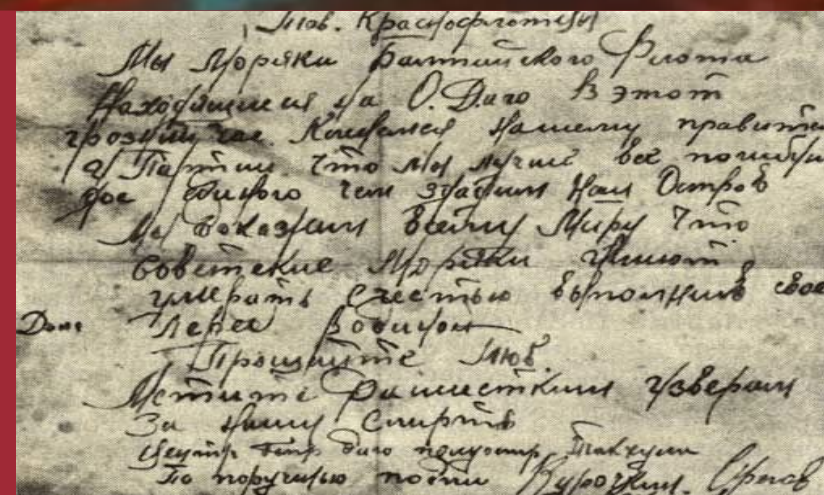 Тов. Краснофлотцы
Мы Моряки Балтийского Флота
Находящиеся на О. Даго В этот
грозный час. Клянемся Нашему правите
и Партии Что мы лучше все погибн
до единого чем сдадим Наш Остров
Мы докажим Всему Миру Что
Советские Моряки умеют
умерать С честью выполнив свое
Долг Перед Родиной
Прощайте Тов.
Мстите Фашистким Изверам
За Нашу Смерть
По поручью Курочкин. Орлов